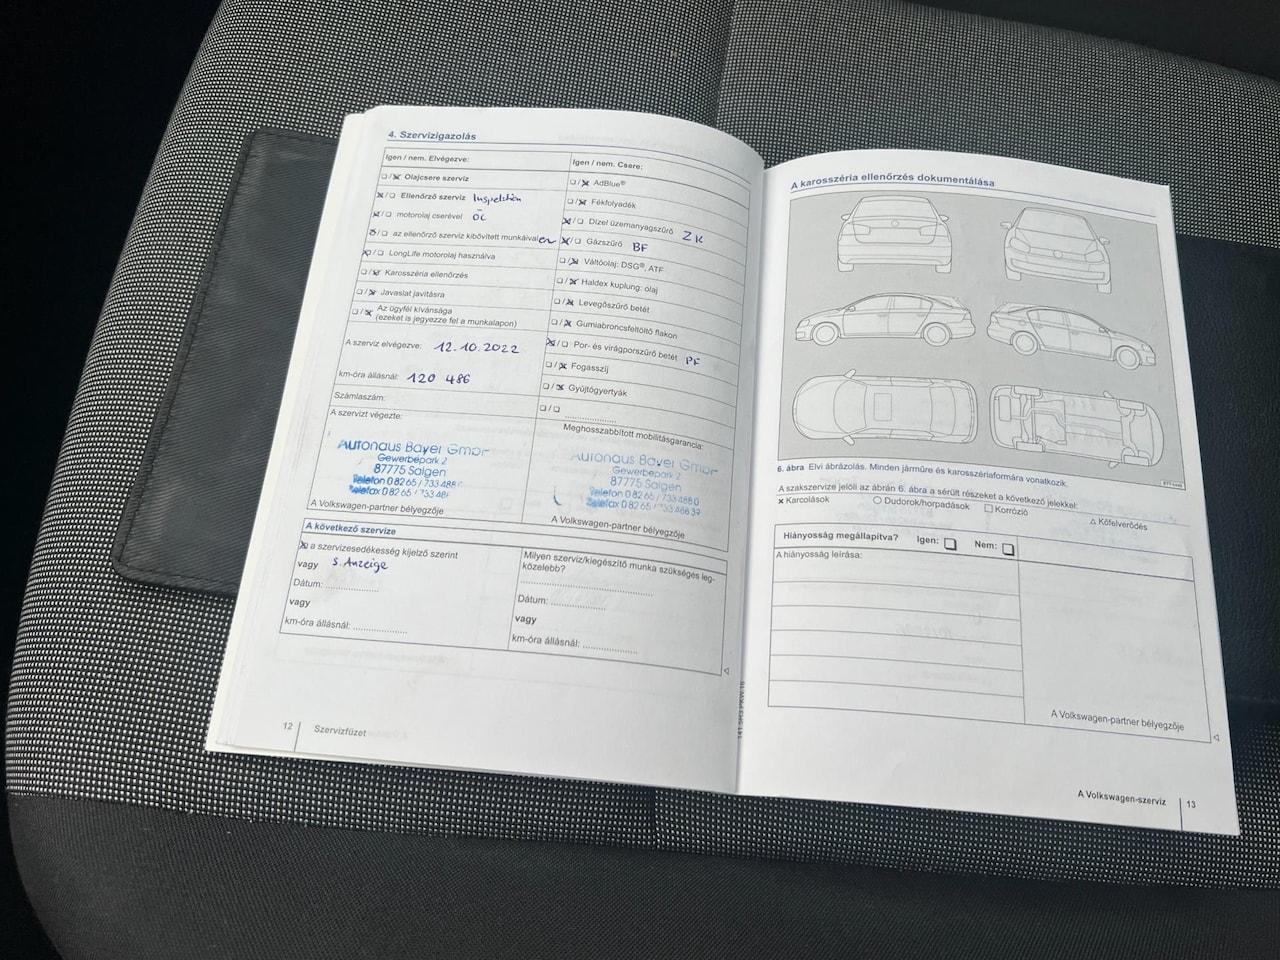 4. Szervizigazolás
Igen / nem. Elvégezve:
Olajcsere szerviz
Ellenőrző szerviz Inspektion
motorolaj cserével ÖL
az ellenőrző szerviz kibővített munkáival
LongLife motorolaj használva
Karosszéria ellenőrzés
Javaslat javításra
Az ügyfél kívánsága
(ezeket is jegyezze fel a munkalapon)
A szerviz elvégezve: 12.10.2022
km-óra állásnál: 120 486
Számlaszám:
A szervizt végezte:
Autohaus Bayer GmbH
Gewerbepark 2
87775 Salgen
Telefon 0 82 65 / 733 488
Telefax 0 82 65 / 733 48
A Volkswagen-partner bélyegzője
Igen / nem. Csere:
AdBlue®
Fékfolyadék
Dízel üzemanyagszűrő ZK
Gázszűrő BF
Váltóolaj: DSG®, ATF
Haldex kuplung: olaj
Levegőszűrő betét
Gumiabroncsfeltöltő flakon
Por- és virágporszűrő betét PF
Fogasszíj
Gyújtógyertyák
Meghosszabbított mobilitásgarancia:
Autohaus Bayer GmbH
Gewerbepark 2
87775 Salgen
Telefon 0 82 65 / 733 488 0
Telefax 0 82 65 / 733 488 39
A Volkswagen-partner bélyegzője
A következő szervize
a szervizesedékesség kijelző szerint
vagy s. Anzeige
Dátum:
vagy
km-óra állásnál:
Milyen szerviz/kiegészítő munka szükséges leg-
közelebb?
Dátum:
vagy
km-óra állásnál:
12
Szervizfüzet
A karosszéria ellenőrzés dokumentálása
6. ábra Elvi ábrázolás. Minden járműre és karosszériaformára vonatkozik.
A szakszervize jelöli az ábrán 6. ábra a sérült részeket a következő jelekkel:
Karcolások
Dudorok/horpadások
Korrózió
Kőfelverődés
Hiányosság megállapítva? Igen: Nem:
A hiányosság leírása:
A Volkswagen-partner bélyegzője
A Volkswagen-szerviz
13